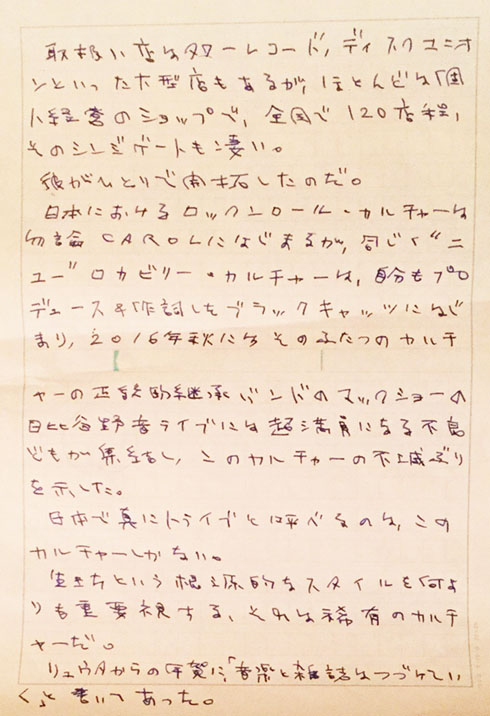 取扱い店はタワーレコード、ディスクユニオ
ンといった大型店もあるが、ほとんどは個
人経営のショップで、全国で120店程、
そのシンジゲートも凄い。
彼がひとりで開拓したのだ。
日本におけるロックンロール・カルチャーは
勿論CAROLにはじまるが、同じく“ニ
ュー”ロカビリー・カルチャーは、自分もプロ
デュース&作詞したブラックキャッツにはじ
まり、2016年秋にはそのふたつのカルチ
ャーの正統的継承バンドのマックショーの
日比谷野音ライブには超満員になる不良
どもが集結し、このカルチャーの不滅ぶり
を示した。
日本で真にトライブと呼べるのは、この
カルチャーしかない。
生立ちという根源的なスタイルを何よ
りも重要視する、それは稀有のカルチ
ャーだ。
リュウタからの年賀に、「音楽と雑誌はつづけてい
く」と書いてあった。